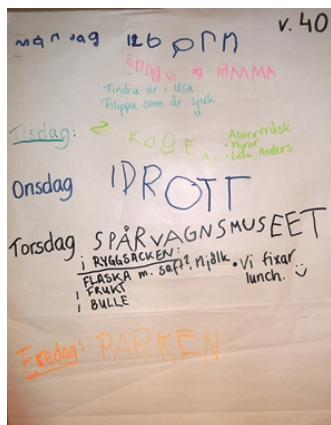 v. 40
måndag 12 bØRn
IDAG VI HEMMA
Tindra är i USA
Filippa som är sjuk
Tisdag: SKOGEN
Aborrträsk
• Myror
• Lata Anders
Onsdag IDROTT
Torsdag SPÅRVAGNSMUSEET
i RYGGSÄCKEN:
FLASKA m. saft?, Mjölk
1 FRUKT
1 BULLE
• Vi fixar
lunch. :)
Fredag: PARKEN